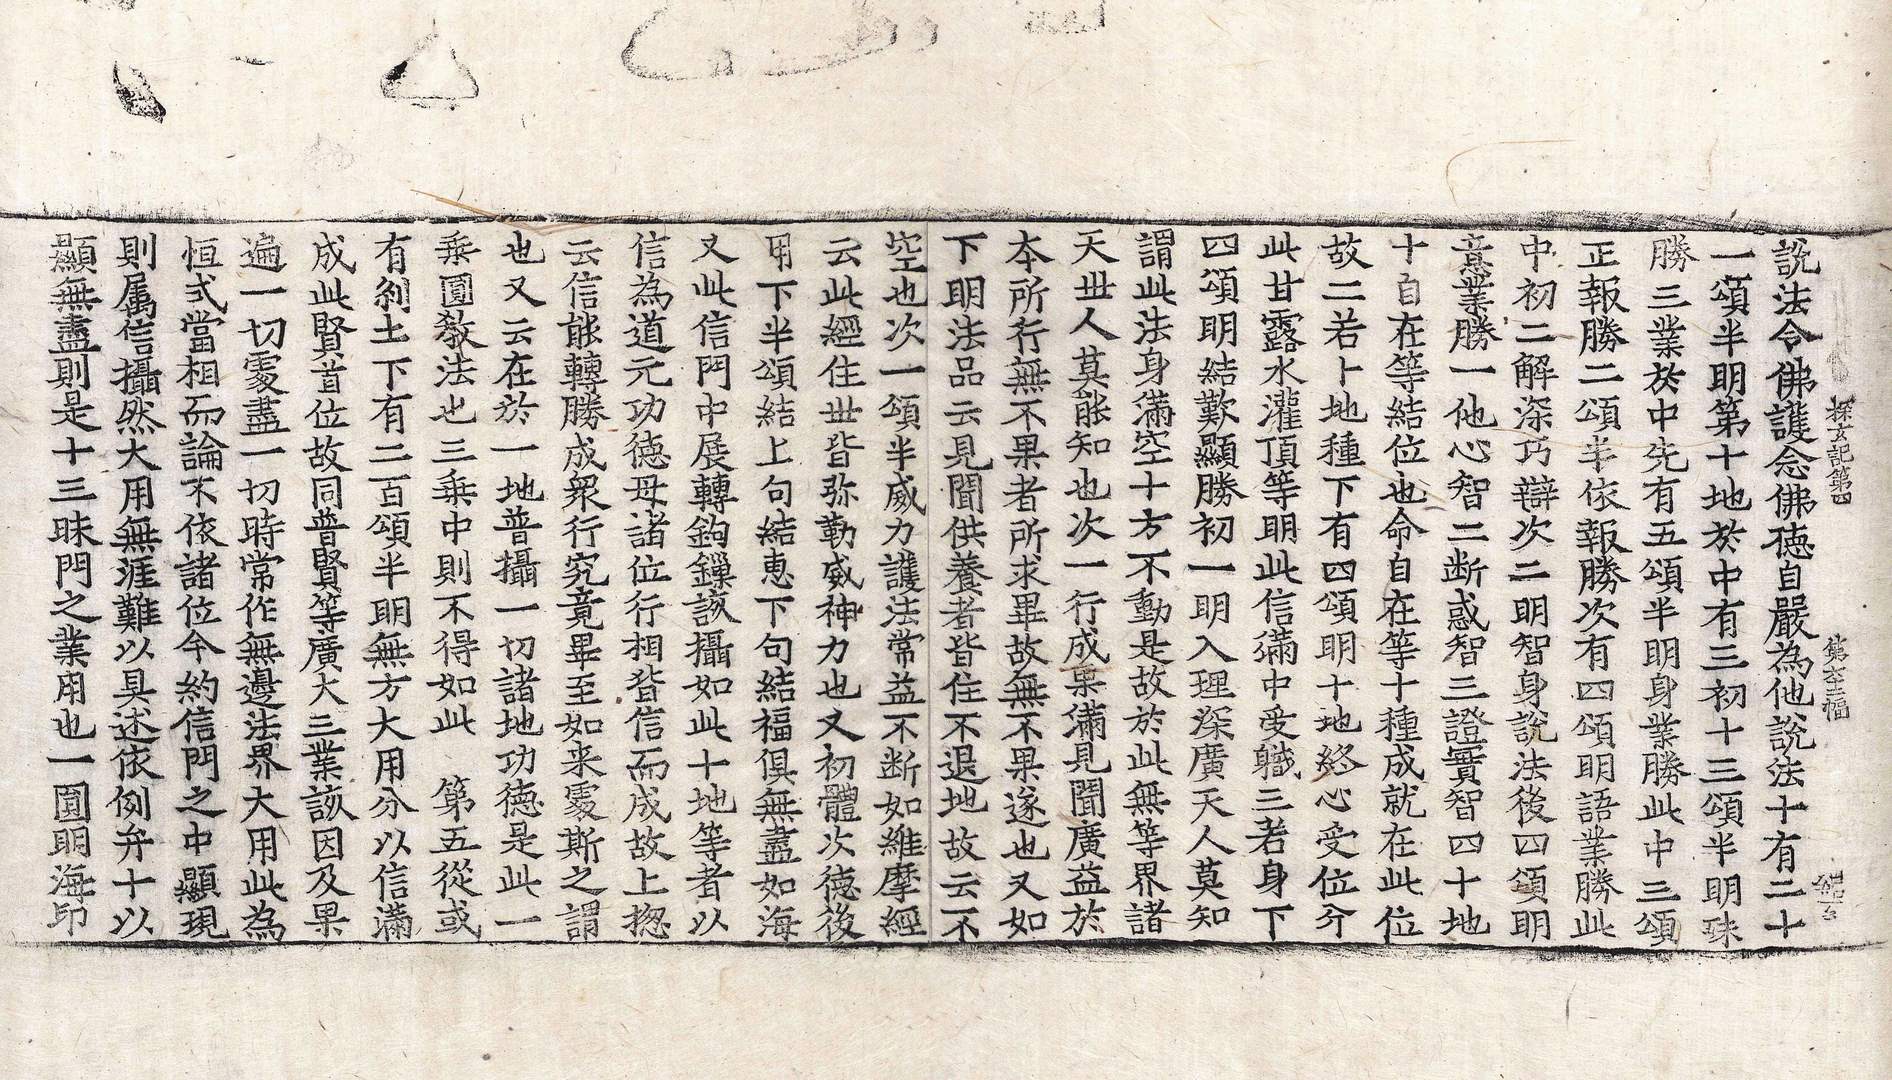 說法令佛護念佛德自嚴為他說法十有二十
一頌半明第十地於中有三初十三頌半明殊
勝三業於中先有五頌半明身業勝此中三頌
正報勝二頌半依報勝次有四頌明語業勝此
中初二解深巧辯次二明智身說法後四頌明
意業勝一他心智二断惑智三證實智四十地
十自在等結位也命自在等十種成就在此位
故二若卜地種下有四頌明十地終心受位分
此甘露水灌頂等明此信滿中受職三若身下
四頌明結歎顯勝初一明入理深廣天人莫知
謂此法身滿空十方不動是故於此無等界諸
天世人莫能知也次一行成果滿見聞廣益於
本所行無不果者所求畢故無不果遂也又如
下明法品云見聞供養者皆住不退地故云不
空也次一頌半威力護法常益不断如維摩經
云此經住世皆弥勒威神力也又初體次德後
用下半頌結上句結恵下句結福俱無盡如海
又此信門中展轉鉤鏁該攝如此十地等者以
信為道元功德母諸位行相皆信而成故上揔
云信能轉勝成衆行究竟畢至如来處斯之謂
也又云在於一地普攝一切諸地功德是此一
乗圓教法也三乗中則不得如此　第五從或
有刹土下有二百頌半明無方大用分以信滿
成此賢首位故同普賢等廣大三業該因及果
遍一切處盡一切時常作無邊法界大用此為
恒式當相而論不依諸位今約信門之中顯現
則属信攝然大用無涯難以具述依例弁十以
顯無盡則是十三昧門之業用也一圓明海印
探玄記第四